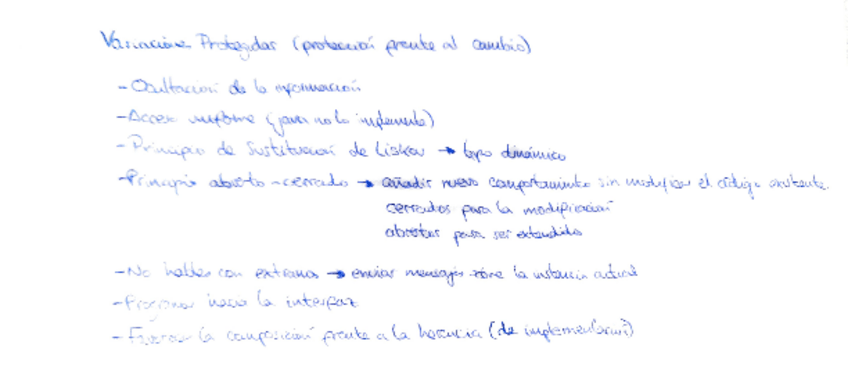 Variaciones Protegidas (protección frente al cambio)
- Ocultación de la información
- Acceso uniforme (java no lo implementa)
- Principio de Sustitución de Liskov → tipo dinámico
- Principio abierto-cerrado → añadir nuevo comportamiento sin modificar el código existente.
cerrados para la modificación
abiertas para ser extendida
- No hables con extraños → enviar mensajes sobre la instancia actual
- Programar hacia la interfaz
- Favorecer la composición frente a la herencia (de implementación)